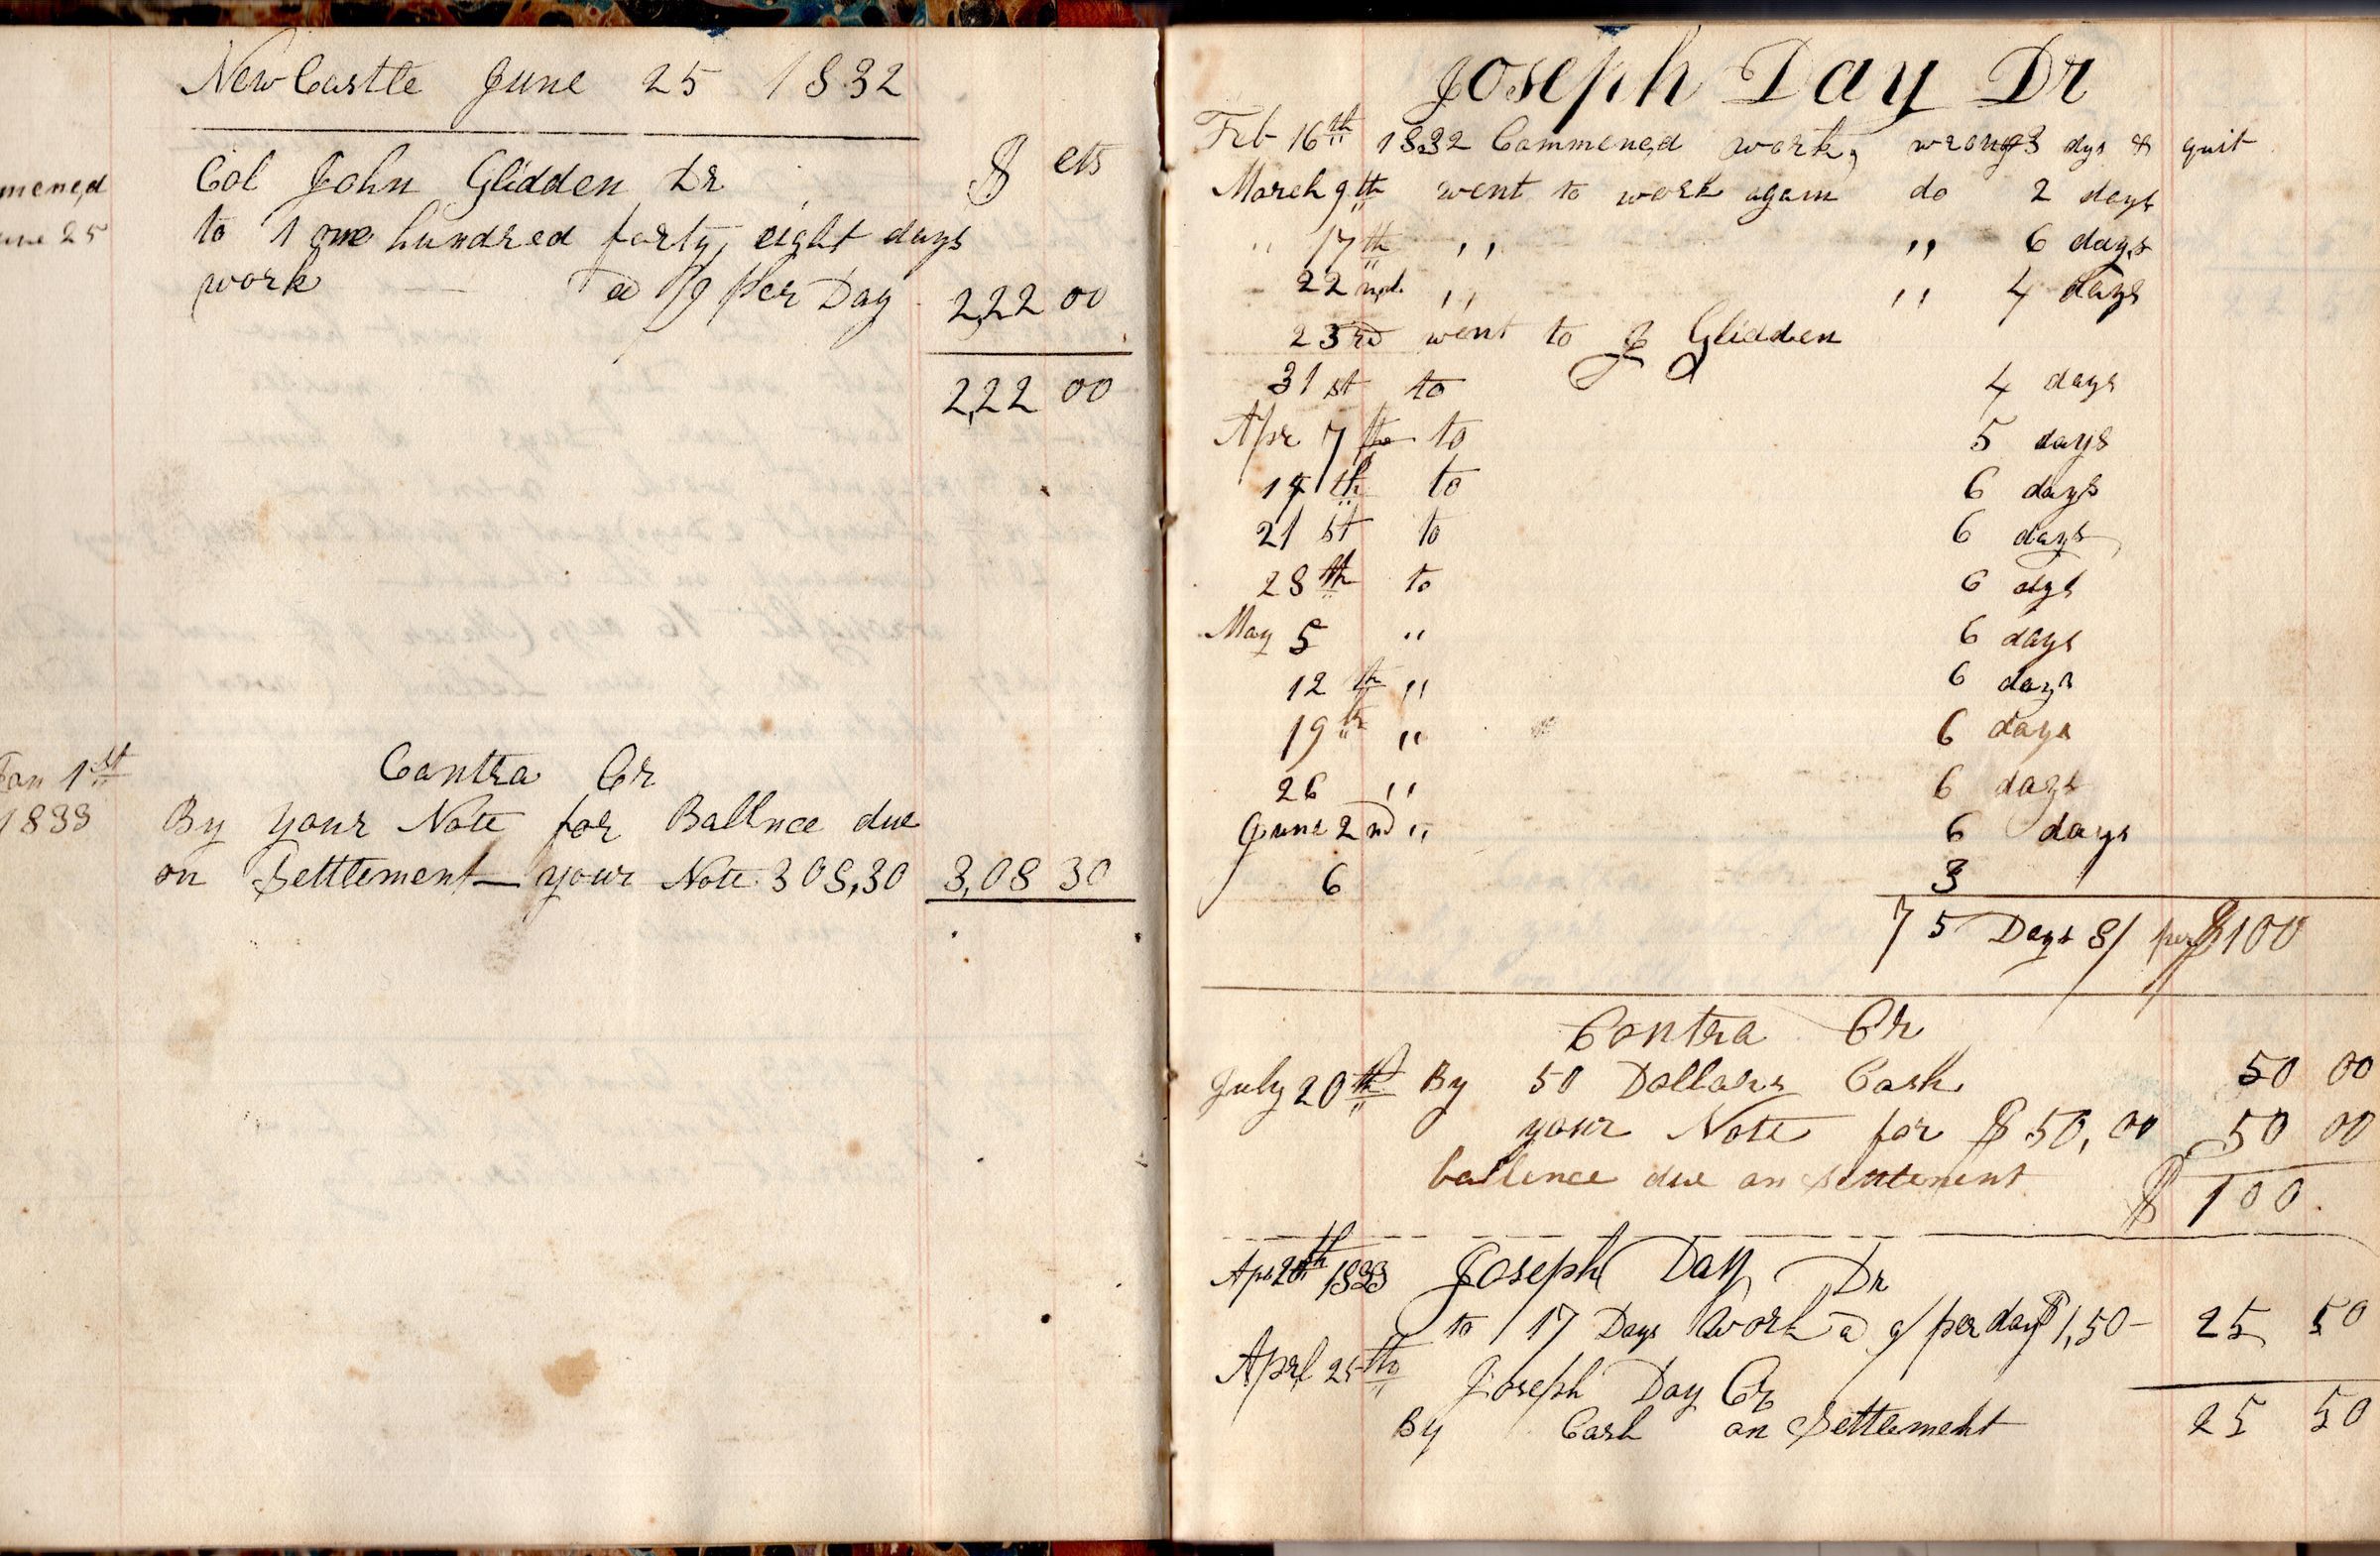 New Castle June 25 1832
$ cts
mene,d
Col John Glidden Dr
une 25
to 1 one hundred forty, eight days
work a 9/ per Day 2,22 00
2,22 00
Contra Cr
Jan 1st
1833
By your Note for Ballnce due
on Settlement your Note 308,30 3,08 30
Joseph Day Dr
Feb 16th 1832 Commene,d work, 3 dys & quit
March 9th went to work again do 2 days
" 17th " " 6 days
22nd " " 4 days
23rd went to J Glidden
31st to 4 days
Apr 7th to 5 days
14th to 6 days
21st to 6 days
28th to 6 dys
May 5 " 6 days
12th " 6 days
19th " 6 days
26 " 6 days
June 2nd " 6 days
6 3
75 Days 8/ per $100
Contra Cr
July 20th By 50 Dollars Cash 50 00
your Note for $50,00 50 00
ballence due on settement $ 100
Apr 20th 1833 Joseph Day Dr
to 17 Days Work a 9/ per day $1,50 - 25 50
Aprl 25th Joseph Day Cr
By Cash on Settlement 25 50